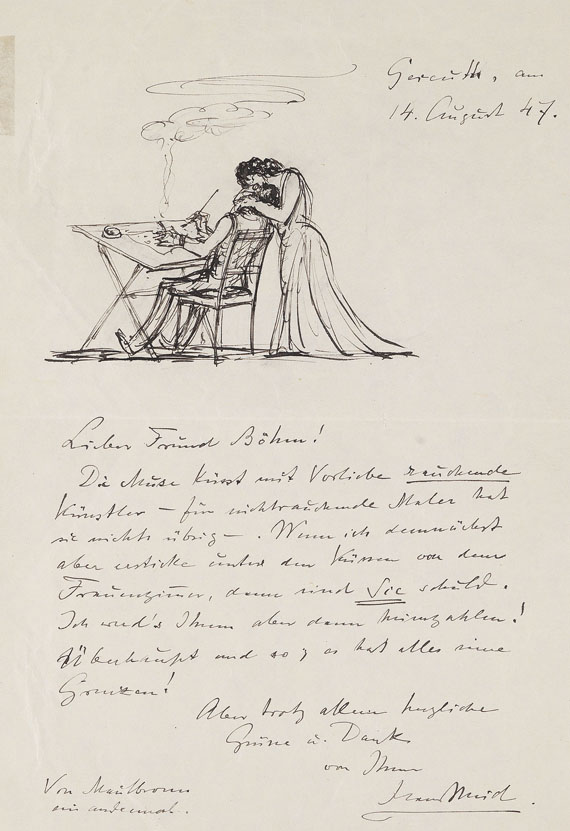 14. August 47.
Lieber Freund Böhm!
Die Muse küsst mit Vorliebe rauchende
Künstler – für nichtrauchende Maler hat
sie nichts übrig – . Wenn ich demnächst
aber ersticke unter den Küssen von dem
Frauenzimmer, dann sind Sie schuld.
Ich werd's Ihnen aber dann heimzahlen!
Überhaupt und so, es hat alles seine
Grenzen!
Aber trotz allem herzliche
Grüsse u. Dank
von Ihrem
Hans Meid.
Von Maulbronn
ein andermal.